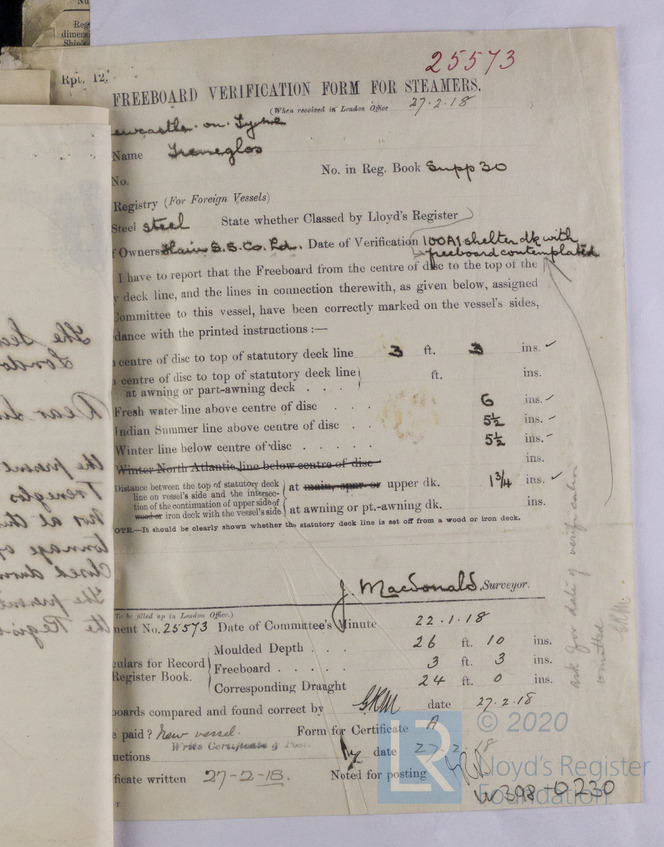 25573
Rpt. 12.
FREEBOARD VERIFICATION FORM FOR STEAMERS.
(When received in London Office 27.2.18
ewcastle-on-Tyne
Name Treneglos
No. in Reg. Book Supp 30
No.
Registry (For Foreign Vessels)
Steel steel State whether Classed by Lloyd's Register
f Owners Hain S.S. Co. Ld. Date of Verification 100A1 shelter dk with
freeboard contemplated
I have to report that the Freeboard from the centre of disc to the top of the
y deck line, and the lines in connection therewith, as given below, assigned
Committee to this vessel, have been correctly marked on the vessel's sides,
dance with the printed instructions :—
centre of disc to top of statutory deck line 3 ft. 3 ins.
centre of disc to top of statutory deck line
at awning or part-awning deck . . . ft. ins.
Fresh water line above centre of disc . . . 6 ins.
Indian Summer line above centre of disc . . 5½ ins.
Winter line below centre of disc . . . . . 5½ ins.
Winter North Atlantic line below centre of disc ins.
Distance between the top of statutory deck
line on vessel's side and the intersec-
tion of the continuation of upper side of
wood or iron deck with the vessel's side
at main, spar or upper dk. 1¾ ins.
at awning or pt.-awning dk. ins.
OTE.—It should be clearly shown whether the statutory deck line is set off from a wood or iron deck.
J. Macdonald, Surveyor.
ask for date of verification
committed
GRM.
To be filled up in London Office.)
ment No. 25573 Date of Committee's Minute 22.1.18
culars for Record
Register Book.
Moulded Depth . . . 26 ft. 10 ins.
Freeboard . . . . 3 ft. 3 ins.
Corresponding Draught 24 ft. 0 ins.
boards compared and found correct by GRM date 27.2.18
e paid? New vessel. Form for Certificate A
Write Certificate &
uctions date 27.2.18
ficate written 27-2-18. Noted for posting
W398-0230
LR
© 2020
Lloyd's Register
Foundation